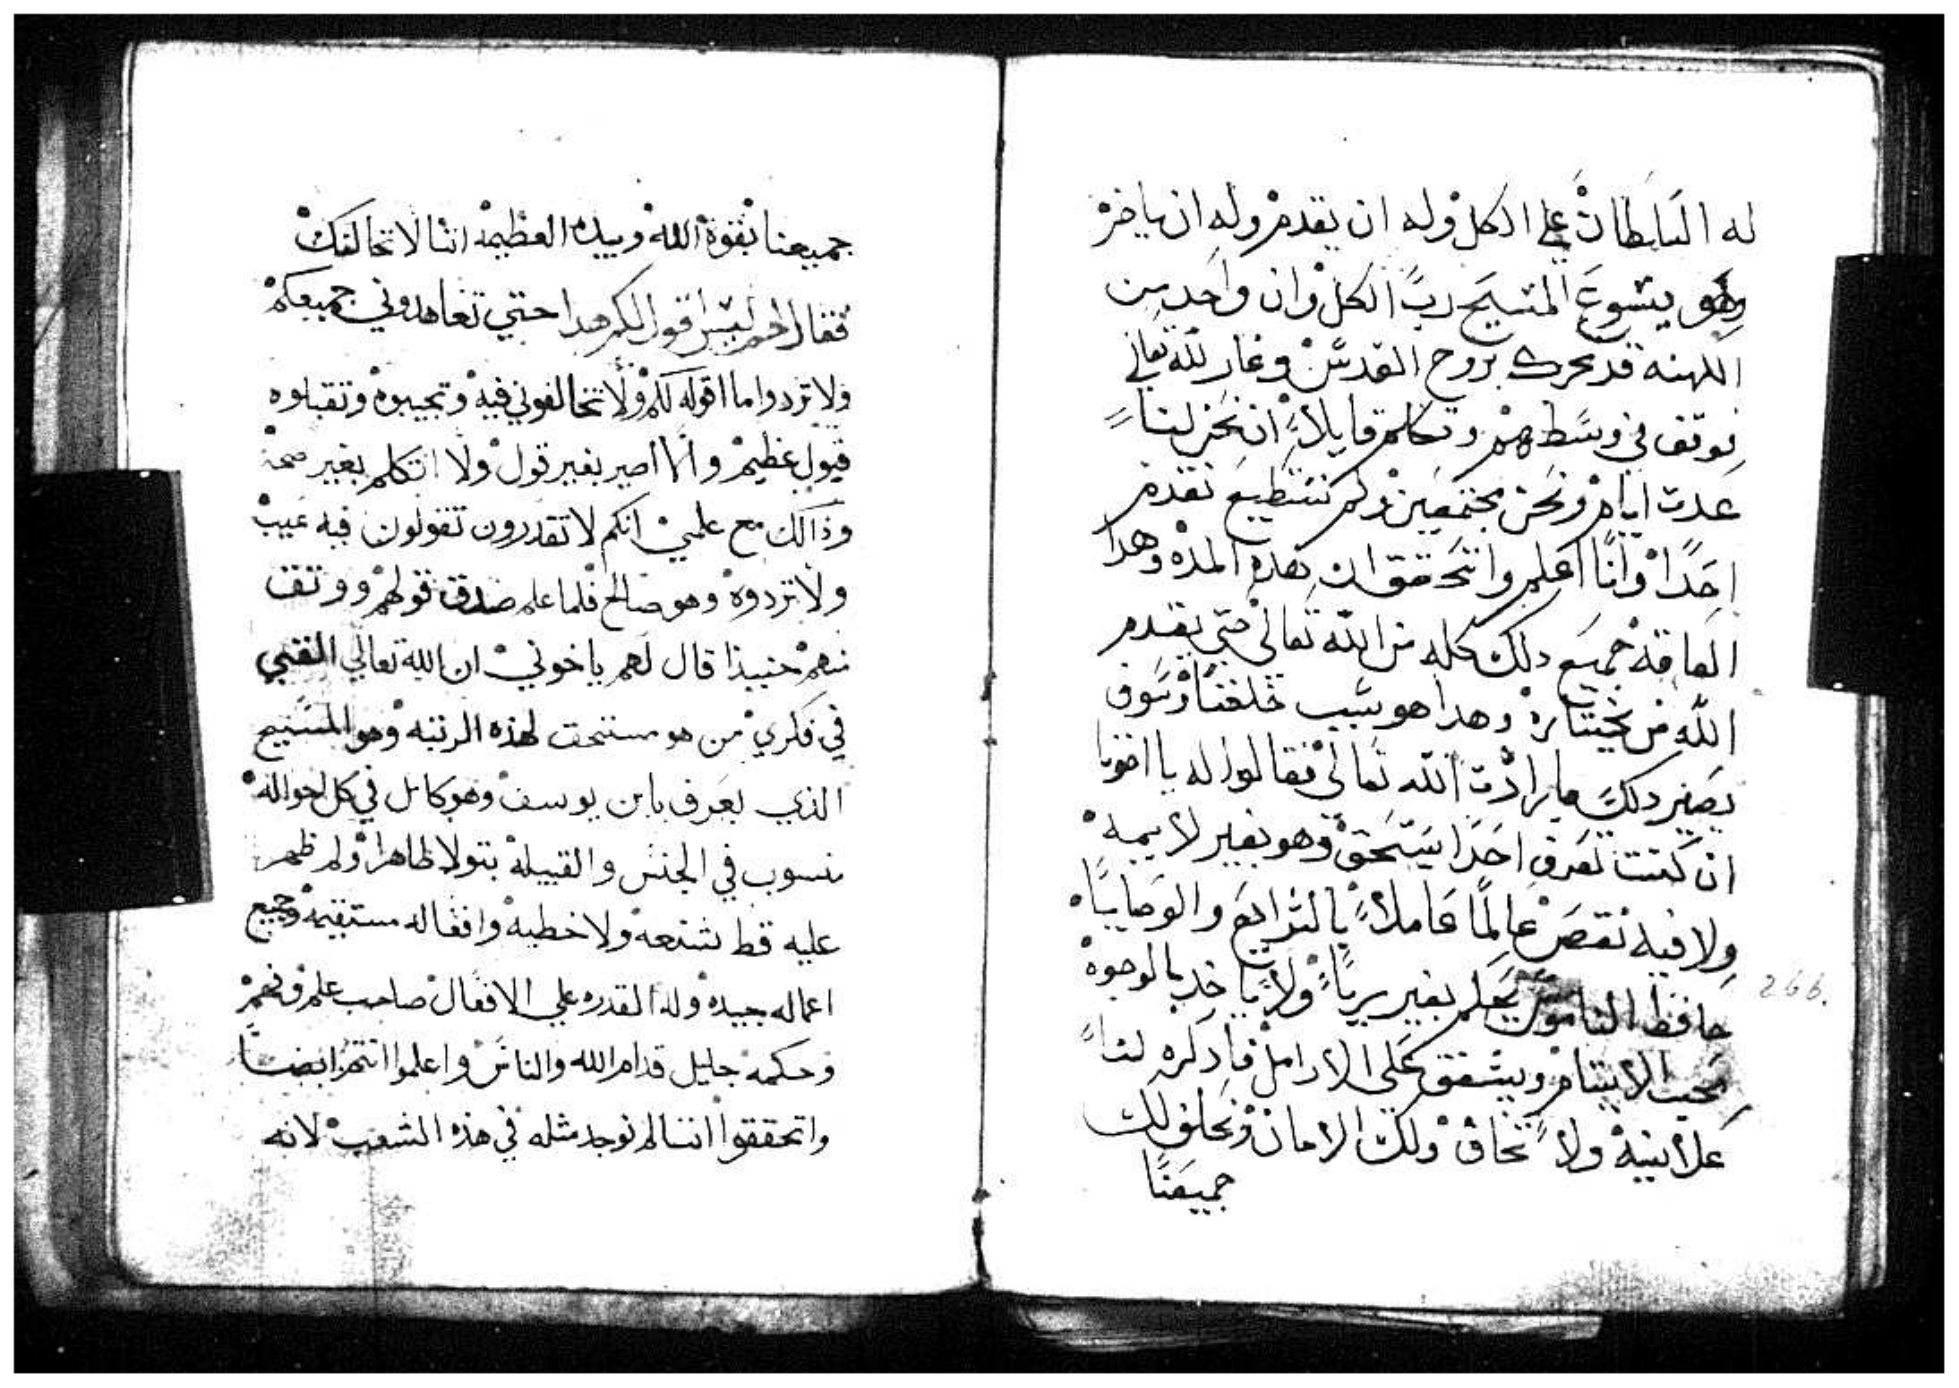 له السلطان علي الكل وله ان يقدم وله ان ياخر
وهو يشوع المسيح رب الكل وان واحد من
الكهنه قد تحرك بروح القدس وغار لله تعالي
فوقف في وسطهم وتكلم قايلاً ان نحن لنا
عدت ايام ونحن مجتمعين ولم نستطيع نقدم
احداً وانا اعلم واتحقق ان هده المده وهدا
العاقه جميع دلك كله من الله تعالي حتي يقدم
الله من يختاره وهدا هو سبب خلفنا وسوف
يصير دلك بارادت الله تعالي فقالوا له يا اخونا
ان كنت تعرف احداً يستحق وهو بغير لايمه
ولا فيه نقص عالماً عاملاً بالشرايع والوصايا
حافظ الناموس يعلم بغير رياً ولا ياخد بالوجوه
محب الايتام ويشفق علي الارامل فادكره لنا
علانيه ولا تخاف ولك الامان ونحلف لك
جميعنا
266.
جميعنا بقوة الله وبيده العظيمه اننا لا نخالفك
فقال لهم ليس اقول لكم هدا حتي تعاهدوني جميعكم
ولا تردوا ما اقوله لكم ولا تخالفوني فيه وتجيبوه وتقبلوه
قبول عظيم وانا اصير بغير قول ولا اتكلم بغير صحة
وذالك مع علمي انكم لا تقدرون تقولون فيه عيب
ولا تردوه وهو صالح فلما علم صدق قولهم ووثق
منهم حنيبذا قال لهم ياخوتي ان الله تعالي القي
في فكري من هو مستحق لهذه الرتبه وهو المسيح
الذي يعرف بابن يوسف وهو كامل في كل احواله
منسوب في الجنس والقبيله بتولا ظاهرا ولم ظهر
عليه قط شنعه ولا خطيه وافعاله مستقيمه وجميع
اعماله جيده وله القدره علي الافعال صاحب علم وفهم
وحكمه جليل قدام الله والناس واعلموا انتم ايضاً
واتحققوا اننا لم نوجد مثله في هذه الشعب لانه